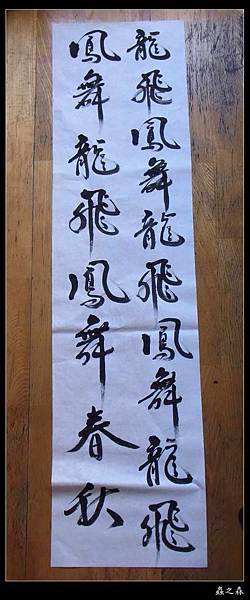 龍飛鳳舞龍飛鳳舞龍飛
鳳舞龍飛鳳舞春秋
蟲之森